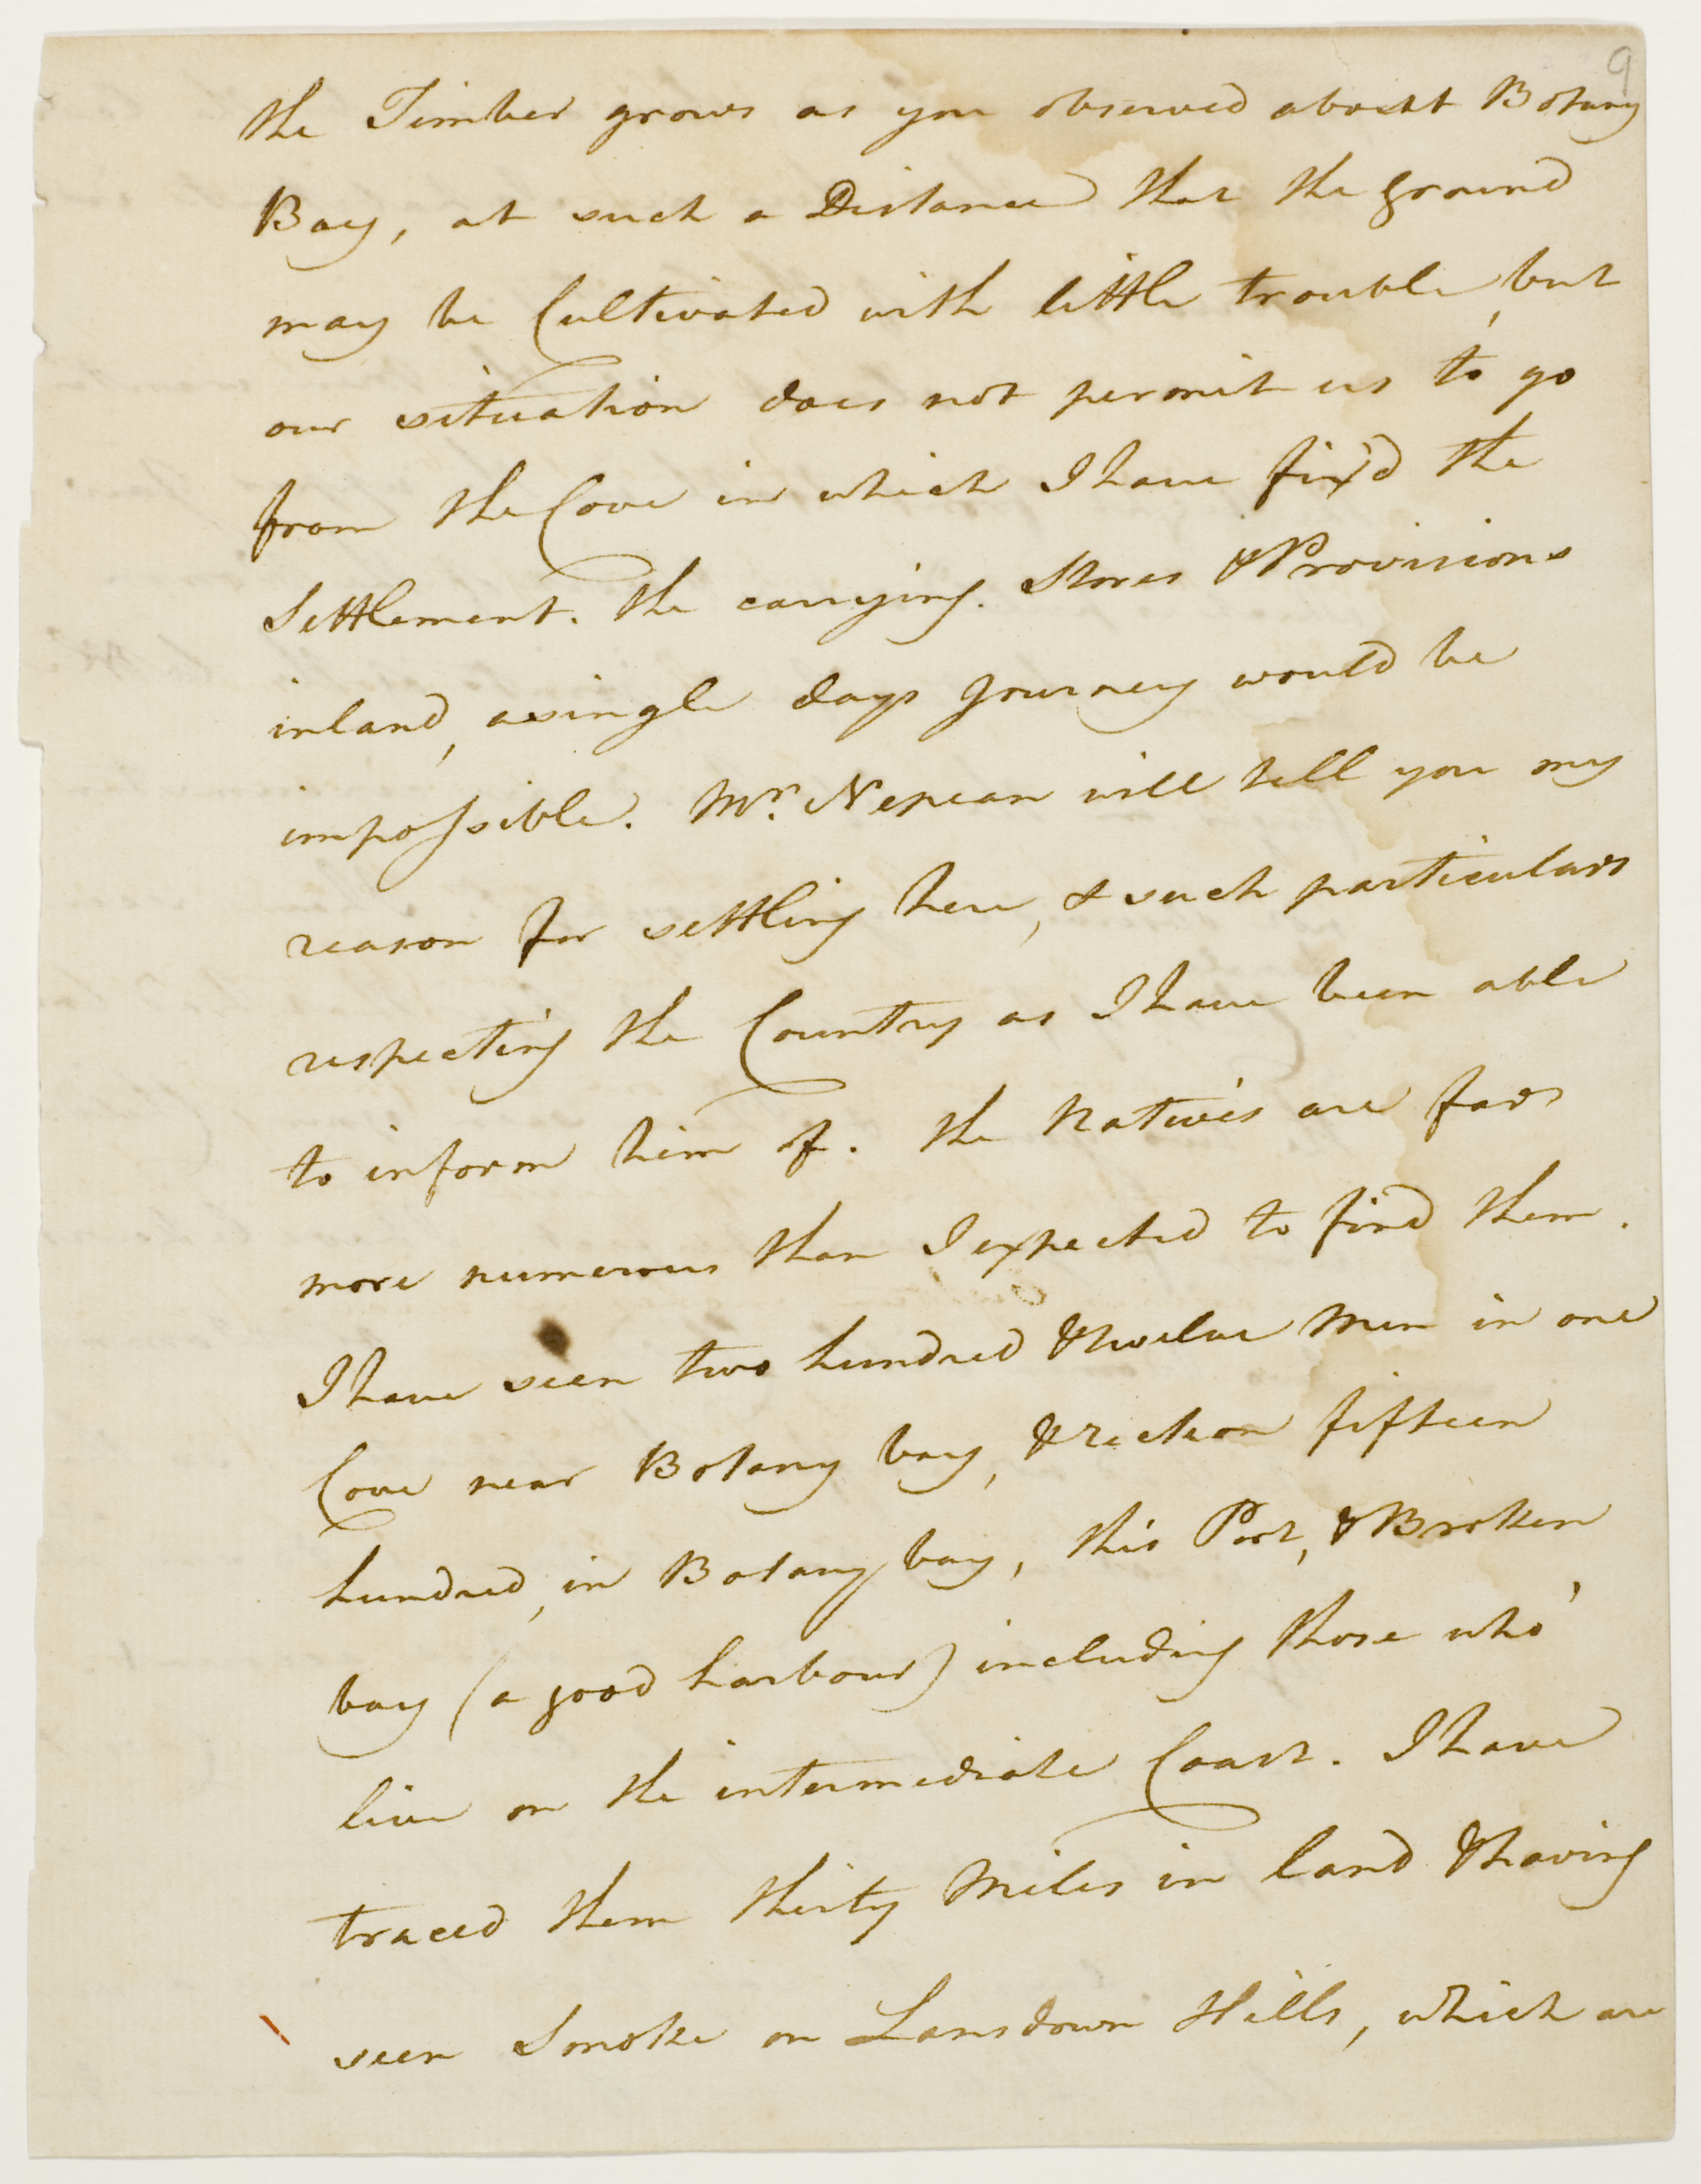 9
the Timber grows as you observed about Botany
Bay, at such a Distance that the ground
may be Cultivated with little trouble, but
our situation does not permit us to go
from the Cove in which I have fix'd the
Settlement. the carrying Stores & Provisions
inland, a single days Journey would be
impossible. Mr. Nepean will tell you my
reason for settling here, & such particulars
respecting the Country as I have been able
to inform him of. the Natives are far
more numerous than I expected to find them.
I have seen two hundred & twelve Men in one
Cove near Botany bay, & reckon fifteen
hundred, in Botany bay, this Port, & Broken
bay (a good harbour) including those who
live on the intermediate Coast. I have
traced them thirty Miles in land & having
seen Smoke on Lansdown Hills, which are